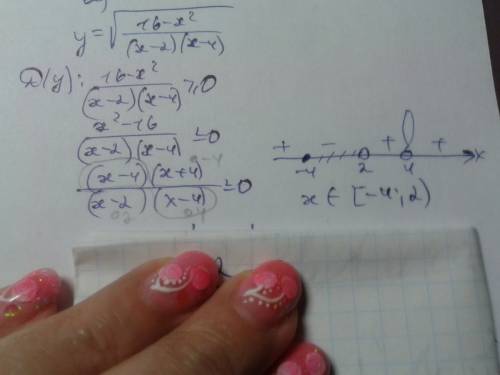 y = √((16-x²)/((x-2)(x-4)))
D(y): (16-x²)/((x-2)(x-4)) ≥ 0
(x²-16)/((x-2)(x-4)) ≤ 0
((x-4)(x+4))/((x-2)(x-4)) ≤ 0
+ - + +
-4 2 4 x
x ∈ [-4; 2)